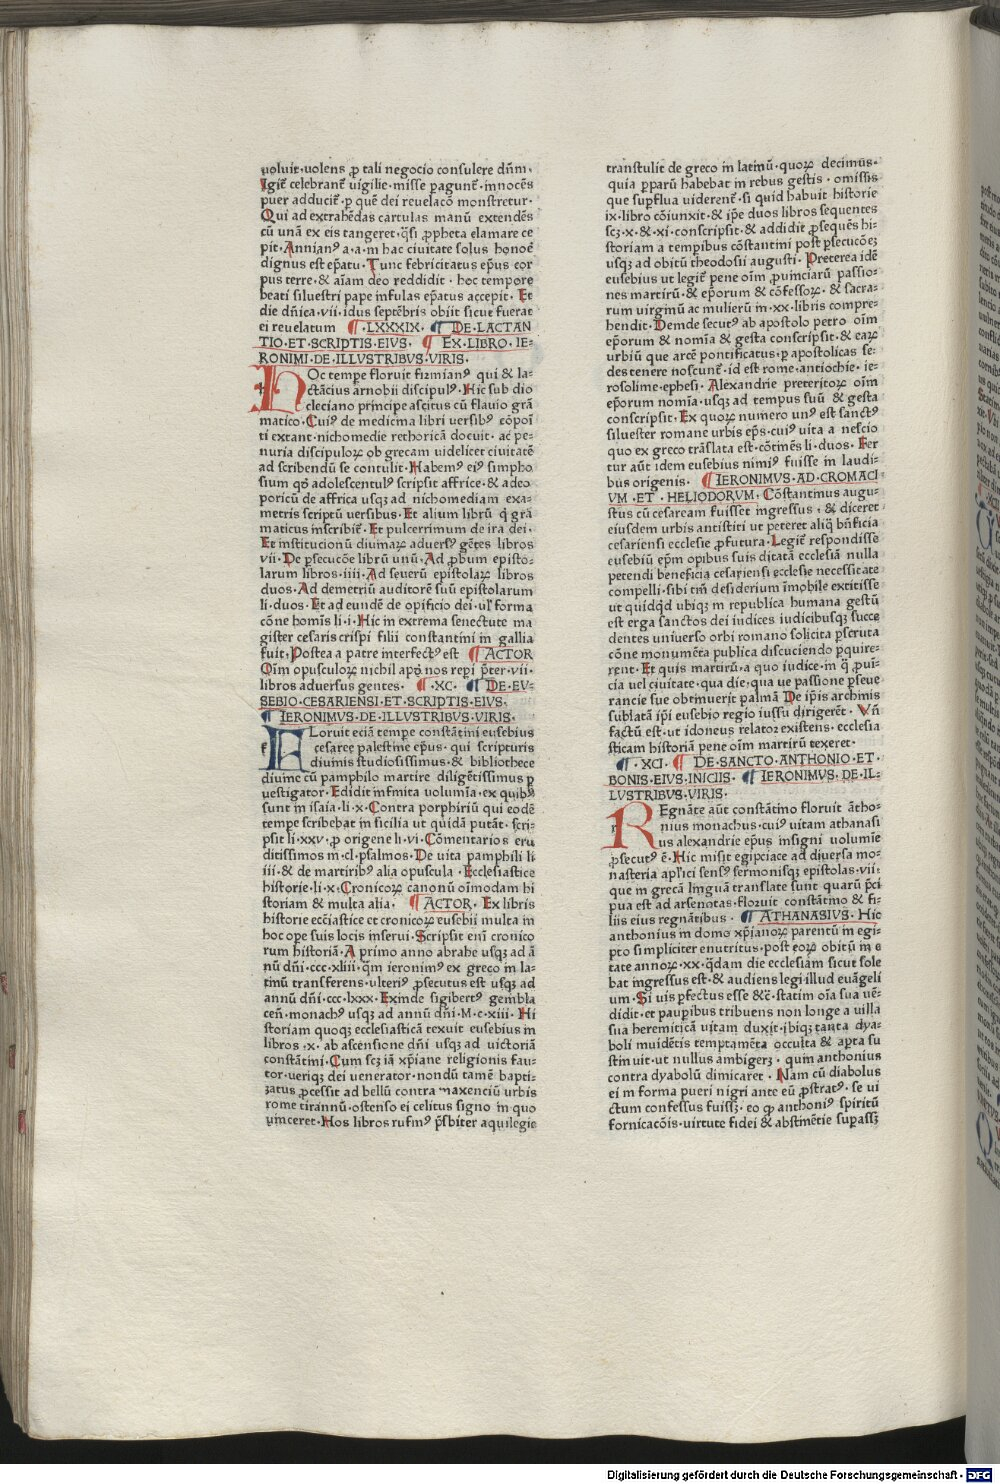 uoluit·uolens ꝓ tali negocio consulere dn̄m·
Igit᷑ celebrant᷑ uigilie·misse pagunt᷑·innocēs
puer adducit᷑·ꝑ quē dei reuelacō monstretur·
Qui ad extrahēdas cartulas manū extendēs
cū unā ex eis tangeret·q̄si ꝓpheta clamare ce
pit·Annianꝰ a·a·m hac ciuitate solus honoē
dignus est ep̄atu·Tunc febricitatus ep̄us cor
pus terre·& aīam deo reddidit· hoc tempore
beati siluestri pape infulas ep̄atus accepit· Et
die dn̄ica·vii·idus septēbris obiit sicut fuerat
ei reuelatum ¶·LXXXIX· ¶ DE·LACTAN
TIO·ET·SCRIPTIS·EIVS· ¶ EX·LIBRO·IE-
RONIMI·DE·ILLVSTRIBVS·VIRIS·
HOc tempe floruit firmianꝰ qui & la-
ctācius arnobii discipulꝰ·Hic sub dio
cleciano principe ascitus cū flauio grā
matico·Cuiꝰ de medicina libri uersibꝰ cōpoi
ti extant·nichomedie rethoricā docuit· ac pe-
nuria discipuloꝝ ob grecam uidelicet ciuitatē
ad scribendū se contulit·Habemꝰ eiꝰ simpho
sium qō adolescentulꝰ scripsit affrice·& adeo
poricū de affrica usqꝫ ad nichomediam exa-
metris scriptū uersibus·Et alium librū q̄ grā
maticus inscribit᷑·Et pulcerrimum de ira dei·
Et institucionū diuinaꝝ aduersꝰ gētes libros
vii·De ꝑsecucōe librū unū·Ad ꝓbum episto-
larum libros·iiii·Ad seuerū epistolaꝝ libros
duos·Ad demetriū auditorē suū epistolarum
li·duos·Et ad eundē de opificio dei·ul' forma
cōne homīs li·i·Hic in extrema senectute ma
gister cesaris crispi filii constantini in gallia
fuit·Postea a patre interfectꝰ est ¶ ACTOR
Oīm opusculoꝝ nichil apō nos repi p̄ter·vii·
libros aduersus gentes· ¶·XC· ¶ DE·EV-
SEBIO·CESARIENSI·ET·SCRIPTIS·EIVS·
¶ IERONIMVS·DE·ILLVSTRIBVS·VIRIS·
FLoruit eciā tempe constātini eusebius
cesaree palestine ep̄us· qui scripturis
diuinis studiosissimus·& bibliothece
diuine cū pamphilo martire diligētissimus ꝑ
uestigator·Edidit infinita uolumīa·ex quibꝰ
sunt in isaia·li·x·Contra porphiriū qui eodē
tempe scribebat in sicilia ut quidā putāt·scri-
psit li·xxv·ꝓ origene li·vi·Cōmentarios eru
ditissimos in·cl·psalmos·De uita pamphili li
iii·& de martiribꝰ alia opuscula·Ecclesiastice
historie·li·x·Cronicoꝝ canonū oīmodam hi
storiam & multa alia· ¶ ACTOR· Ex libris
historie eccīastice et cronicoꝝ eusebii multa in
hoc ope suis locis inserui·Scripsit enī cronico
rum historiā·A primo anno abrahe usqꝫ ad ā
nū dn̄i·ccc·xliii·qm̄ ieronimꝰ ex greco in la-
tinū transferens·ulteriꝰ ꝓsecutus est usqꝫ ad
annū dn̄i·ccc·lxxx·Exinde sigibertꝰ gembla
ceñ·monachꝰ usqꝫ ad annū dn̄i·M·c·xiii·Hi
storiam quoqꝫ ecclesiasticā texuit eusebius in
libros·x· ab ascensione dn̄i usqꝫ ad uictoriā
constātini·Cum scꝫ iā xp̄iane religionis fau-
tor·ueriqꝫ dei uenerator·nondū tamē bapti-
zatus ꝓcessit ad bellū contra maxenciū urbis
rome tirannū·ostenso ei celitus signo in quo
uinceret·Hos libros rufinꝰ p̄sbiter aquilegie
transtulit de greco in latinū·quoꝝ decimus·
quia ꝑparū habebat in rebus gestis· omissis
que suꝑflua uiderent᷑·si quid habuit historie
ix·libro cōiunxit·& ip̄e duos libros sequentes
scꝫ·x·& xi·conscripsit·& addidit ꝓsequēs hi-
storiam a tempibus cōstantini post ꝑsecucōeꝫ
usqꝫ ad obitū theodosii augusti·Preterea idē
eusebius ut legit᷑ pene oīm ꝓuinciarū passio-
nes martirū·& ep̄orum & cōfessoꝝ·& sacra-
rum uirginū ac mulierū in·xx·libris compre-
hendit·Deinde secutꝰ ab apostolo petro oīm
ep̄orum & nomīa & gesta conscripsit·& eaꝝ
urbiū que arcē pontificatus·ꝑ apostolicas se-
des tenere noscunt᷑·id est rome·antiochie·ie-
rosolime·ephesi·Alexandrie preteritoꝝ oīm
ep̄orum nomīa·usqꝫ ad tempus suū & gesta
conscripsit·Ex quoꝝ numero unꝰ est sanctꝰ
siluester romane urbis ep̄s·cuiꝰ uita a nescio
quo ex greco trāslata est·cōtinēs li·duos·Fer
tur aūt idem eusebius nimiꝰ fuisse in laudi-
bus origenis· ¶ IERONIMVS·AD·CROMACI
VM·ET·HELIODORVM·Cōstantinus augu-
stus cū cesaream fuisset ingressus·& diceret
eiusdem urbis antistiti ut peteret aliq̄ bn̄ficia
cesariensi ecclesie ꝓfutura·Legit᷑ respondisse
eusebiū ep̄m opibus suis ditatā ecclesiā nulla
petendi beneficia cesariensi ecclesie necessitate
compelli·sibi tm̄ desiderium īmobile extitisse
ut quidq̄d ubiqꝫ in republica humana gestū
est erga sanctos dei iudices iudicibusqꝫ succe
dentes uniuerso orbi romano solicita ꝑscruta
cōne monumēta publica discuciendo ꝑquire-
rent·Et quis martirū·a quo iudice·in q̄ ꝓuī-
cia uel ciuitate·qua die·qua ue passione ꝑseue
rancie sue obtinuerit palmā De ip̄is archiuis
sublatā ip̄i eusebio regio iussu dirigeret·Vn̄
factū est·ut idoneus relator existens·ecclesia
sticam historiā pene oīm martirū texeret·
¶·XCI·¶ DE·SANCTO·ANTHONIO·ET·
BONIS·EIVS·INICIIS· ¶ IERONIMVS·DE·IL-
LVSTRIBVS·VIRIS·
REgnāte aūt constātino floruit ātho-
nius monachus·cuiꝰ uitam athanasi
us alexandrie ep̄us insigni uolumīe
ꝓsecutꝰ ē·Hic misit egipciace ad diuersa mo-
nasteria apl'ici sensꝰ sermonisqꝫ epistolas·vii·
que in grecā linguā translate sunt quarū p̄ci
pua est ad arsenoitas·floruit constātino & fi-
liis eius regnātibus· ¶ ATHANASIVS· Hic
anthonius in domo xp̄ianoꝝ parentū in egi-
pto simpliciter enutritus·post eoꝝ obitū in e
tate annoꝝ·xx·q̄dam die ecclesiam sicut sole
bat ingressus est·& audiens legi illud euāgeli
um·Si uis ꝑfectus esse &c̄·statim oīa sua uē-
didit·et pauꝑibus tribuens non longe a uilla
sua heremiticā uitam duxit·ibiqꝫ tanta dya-
boli inuidētis temptamēta occulta & apta su
stinuit·ut nullus ambigeꝫ· quin anthonius
contra dyabolū dimicaret· Nam cū diabolus
ei in forma pueri nigri ante eū ꝓstratꝰ·se ui
ctum confessus fuissꝫ·eo ꝙ anthoniꝰ spiritū
fornicacōis·uirtute fidei & abstinētie supassꝫ
Digitalisierung gefördert durch die Deutsche Forschungsgemeinschaft · DFG